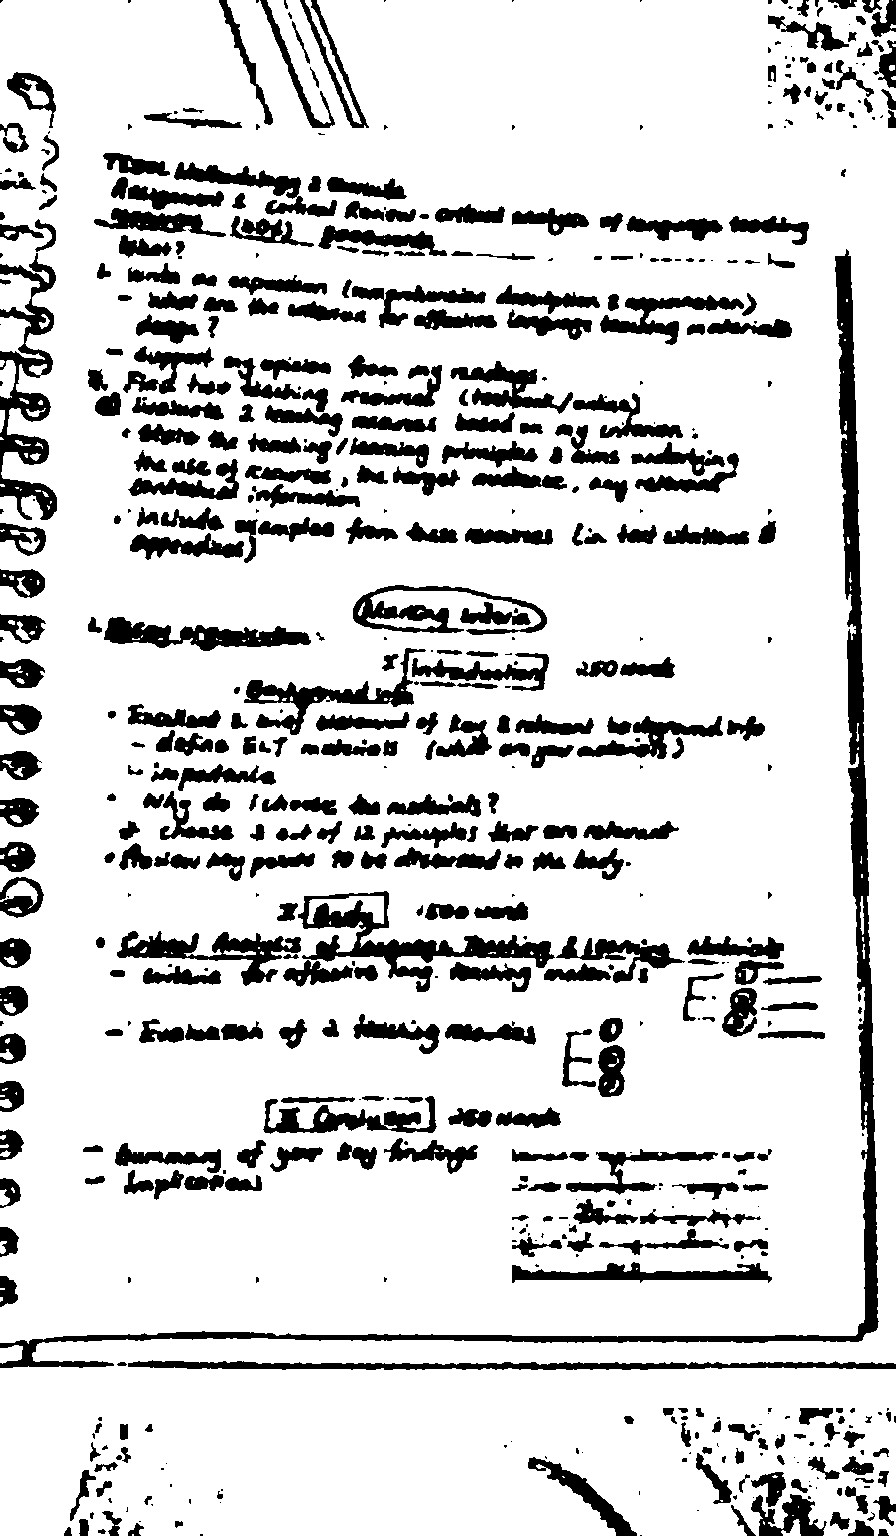 TESOL Methodology &
Assignment 1 Critical Review - critical analysis of language teaching
resources (40%)
What?
write an expression (comprehensive description & explanation)
- what are the criteria for effective language teaching materials
design?
- support my opinion from my readings.
Find two teaching resources (textbook/online)
Evaluate 2 teaching resources based on my criterion.
• state the teaching/learning principles & aims underlying
the use of resources, the target audience, any relevant
contextual information
• include examples from these resources (in text citations &
appendices)
Marking criteria
1. Essay organisation
I. Introduction 250 words
• Background info
• Excellent & brief statement of key & relevant background info
- define ELT materials (what are your materials)
importance
• Why do I choose the materials?
choose 3 out of 12 principles that are relevant
• Review key points to be discussed in the body.
II. Body 1500 words
• Critical Analysis of Language Teaching & Learning Materials
- criteria for effective lang. teaching materials ① ② ③
- Evaluation of 2 teaching resources ① ② ③
III Conclusion 250 words
- Summary of your key findings
- Implications